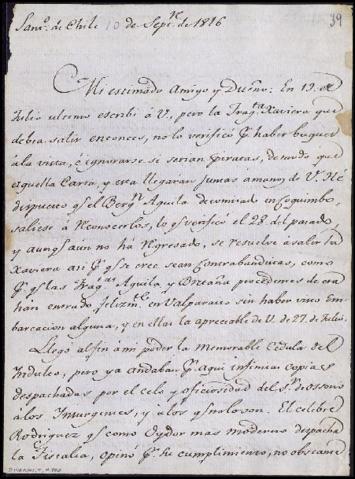 39
Sanº. de Chile 10 de Sepᵗᵉ. de 1816
Mi estimado Amigo y Dueño: En 19. de
Julio ultimo escribi á V. pero la Fragᵗᵃ Xaviera que
debia salir entonces, no lo verificó pʳ. haber buques
á la vista, é ignorarse si serian piratas, de modo que
aquella Carta, y esta llegarán juntas á manos de V. Hé
despues q̃ el Bergⁿ. Aguila decomisado en Coquimbo,
saliese á reconocerlos, lo q̃ verificó el 28. del pasado,
y aunq̃ aun no há regresado, se resuelve á salir la
Xaviera asi pʳ. q̃ se cree sean Contrabandistas, como
pʳ. q̃ las Fragᵃˢ Aguila y Bretaña procedentes de esa
hán entrado felizmᵗᵉ. en Valparaiso sin haber visto Em-
barcacion alguna, y en ellas la apreciable de V. de 27. de Julio.
Llegó al fin á mi poder la Memorable Cedula del
Indulto, pero ya andaban pʳ. aqui infinitas copias
despachadas por el celo y oficiosidad del Sʳ. de Ossorio
á los Insurgentes, y á los q̃ no lo son. El celebre
Rodriguez q̃ como Oydor mas moderno despacha
la Fiscalia, opinó pʳ. su cumplimiento, no obstante